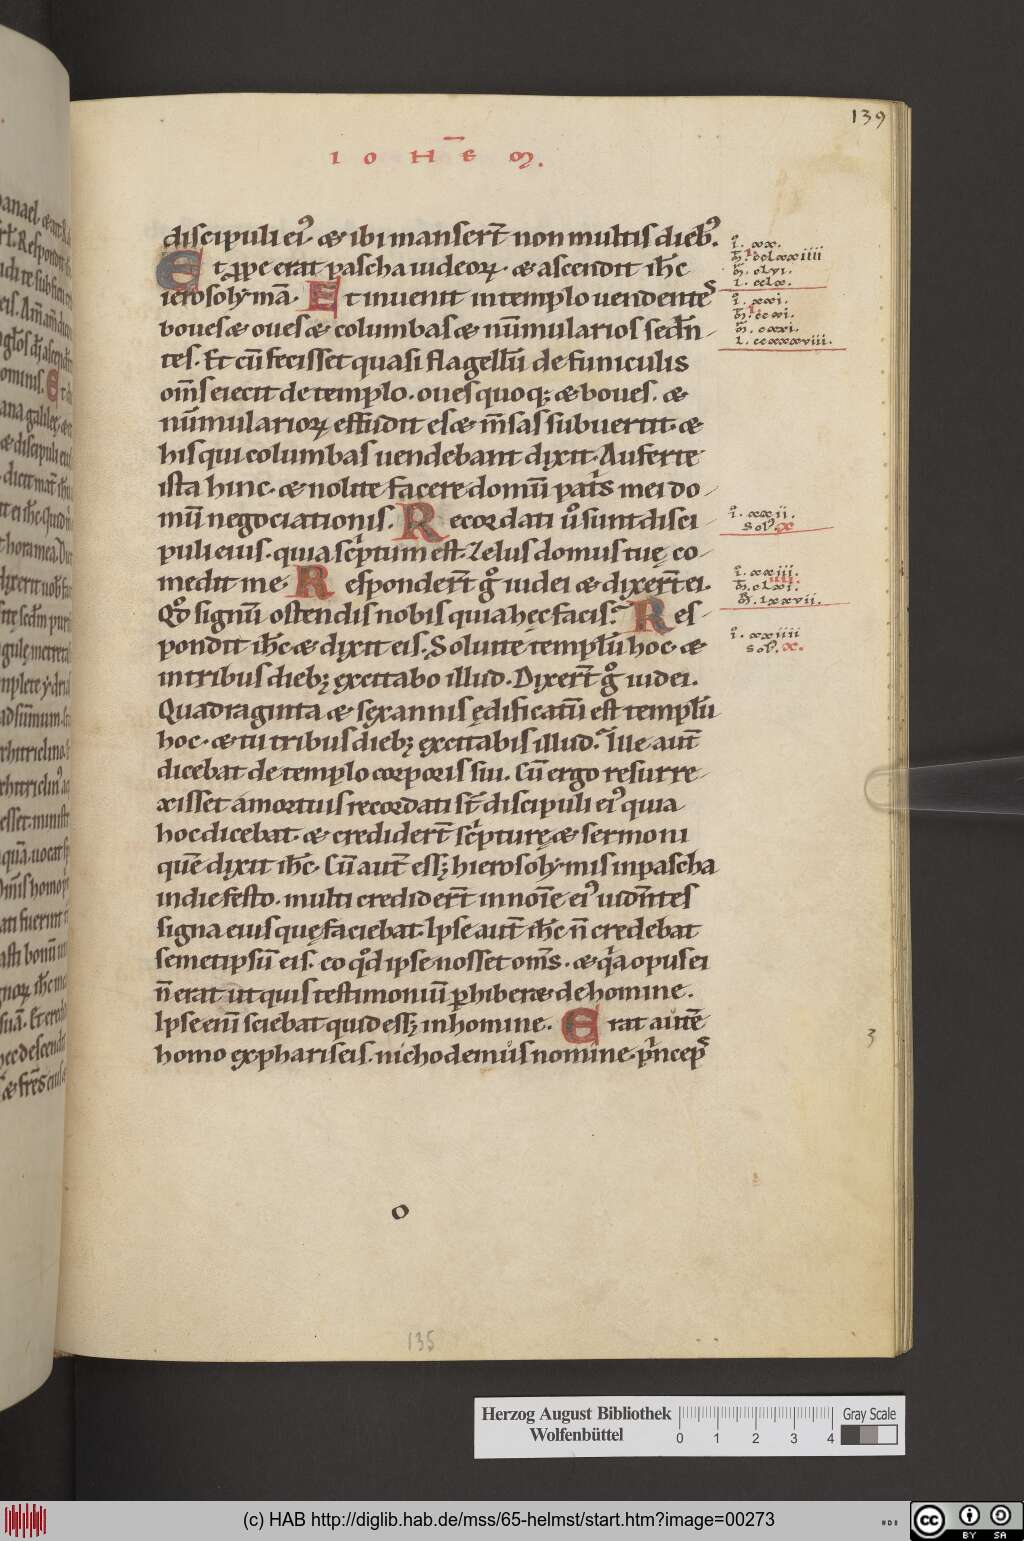 139
IOHEM.
discipuli ei᾽ & ibi manser̄t non multis dieb᾽.
Et ꝓpe erat pascha iudeoꝝ. & ascendit ih̄c
ierosolymā. Et inuenit in templo uendentes
boues & oues & columbas & nūmularios sedn̄-
tes. Et cū fecisset quasi flagellū de funiculis
om̄s eiecit de templo. oues quoq; & boues. &
nūmularioꝝ effudit es & m̄sas subuertit. &
his qui columbas uendebant dixit. Auferte
ista hinc. & nolite facere domū patris mei do-
mū negociationis. Recordati ů sunt disci-
puli eius. quia scriptum est. Zelus domus tuę co-
medit me. Responder̄t g̊ iudei & dixer̄t ei.
Qd̊ signū ostendis nobis quia hęc facis? Res-
pondit ih̄c & dixit eis. Soluite templū hoc. &
in tribus dieb; excitabo illud. Dixer̄t g̊ iudei.
Quadraginta & sex annis ędificatū est templū
hoc. & tu tribus dieb; excitabis illud? Ille aut̄
dicebat de templo corporis sui. Cū ergo resurre-
xisset a mortuis recordati st̄ discipuli ei᾽ quia
hoc dicebat. & credider̄t scripturę & sermoni
quē dixit ih̄c. Cū aut̄ ess; hierosolymis in pascha
in die festo. multi credider̄t in noīe ei᾽ uidn̄tes
signa eius quę faciebat. Ipse aut̄ ih̄c n̄ credebat
semetipsū eis. eo qd̊ ipse nosset om̄s. & qa opus ei
n̄ erat ut quis testimoniū ꝑhiber& de homine.
Ipse enī sciebat quid ess; in homine. Erat autē
homo ex phariseis. nichodemus nomine. princeps
I. xx.
I. cclx.
I. xxi.
I. ccxxxviii.
I. xxii.
Sol᾽. x
I. xxiii.
M. lxxvii.
I. xxiiii
Sol᾽. x.
3
o
135
Herzog August Bibliothek
Wolfenbüttel
0 1 2 3 4
Gray Scale
(c) HAB http://diglib.hab.de/mss/65-helmst/start.htm?image=00273
cc BY SA